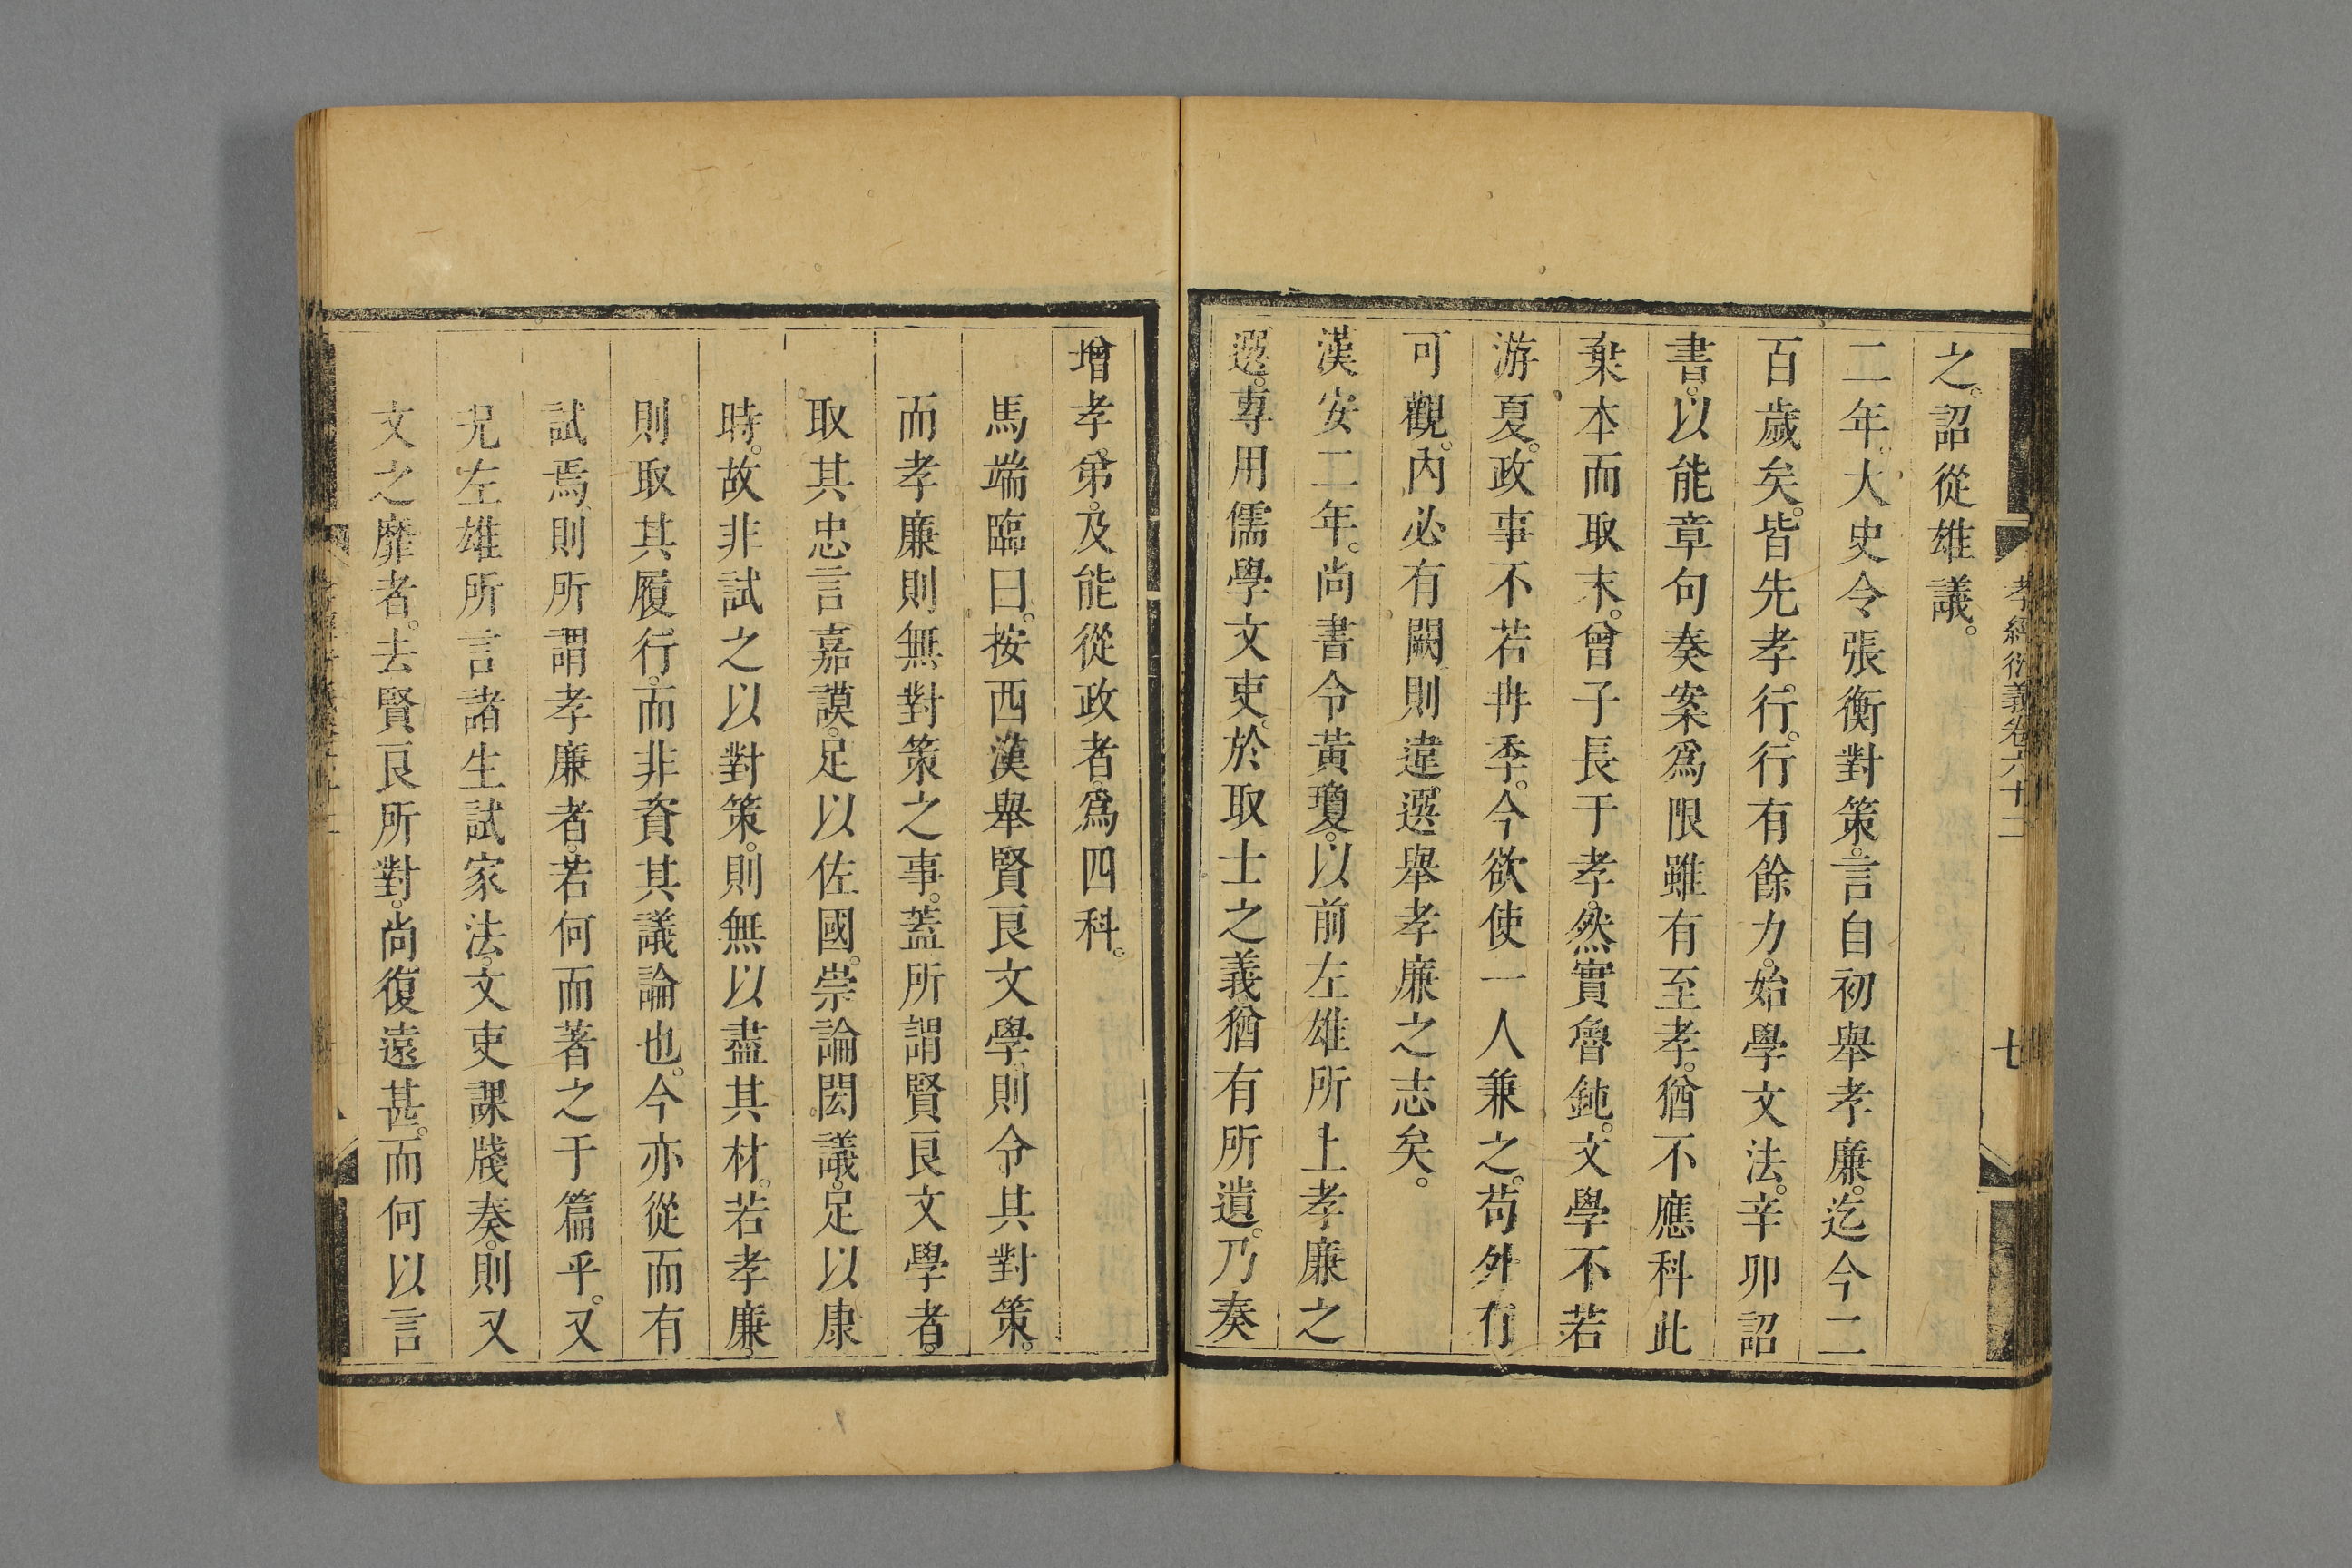 孝經衍義卷六十二 七
之。詔從雄議。
二年。大史令張衡對策。言自初舉孝廉。迄今二
百歲矣。皆先孝行。行有餘力。始學文法。辛卯詔
書。以能章句奏案爲限雖有至孝。猶不應科此
棄本而取末。曾子長于孝。然實魯鈍。文學不若
游夏。政事不若冉季。今欲使一人兼之。苟外有
可觀。內必有闕。則違選舉孝廉之志矣。
漢安二年。尚書令黃瓊。以前左雄所上孝廉之
選。專用儒學文吏。於取士之義猶有所遺。乃奏
增孝弟。及能從政者。爲四科。
馬端臨曰。按西漢舉賢良文學。則令其對策。
而孝廉則無對策之事。蓋所謂賢良文學者。
取其忠言嘉謨。足以佐國。崇論閎議。足以康
時。故非試之以對策。則無以盡其材。若孝廉。
則取其履行。而非資其議論也。今亦從而有
試焉。則所謂孝廉者。若何而著之于篇乎。又
况左雄所言諸生試家法。文吏課牋奏。則又
文之靡者。去賢良所對。尚復遠甚。而何以言